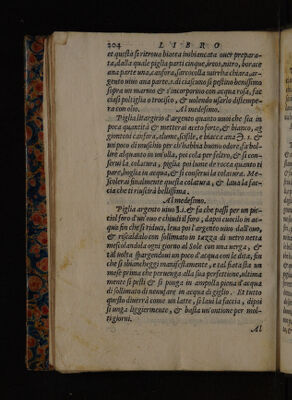 204 LIBRO
et questa si ritroua biacca imbiancata ouer prepara-
ta, dalla quale piglia parti cinque, ireos, nitro, borace
ana parte una, canfora, sarocolla mirrha chiara, ar-
gento uiuo ana parte. s. di ciascuno si pestino benissimo
sopra un marmo & s'incorporino con acqua rosa, fat
ciasi poltiglia o trocisco, & uolendo usarlo distempe-
ra con olio. Al medesimo.
Piglia litargirio d'argento quanto uuoi che sia in
poca quantità & metterai aceto forte, & bianco, ag
giontoui canfora, alume, scisile, e biacca ana
un poco di muschio per ch'habbia buono odore, fa bol-
lire alquanto in un'olla, poi cola per feltro, & si con-
serui la colatura, poglia poi lume de rocca quanto ti
pare, boglia in acqua, & si conserui la colatura. Me-
scolerai finalmente questa colatura, & laua la fac-
cia che ti riuscirà bellissima.
Al medesimo.
Piglia argento uiuo & fa che passi per un pic-
ciol foro d'un' ouo e chiudi il foro, dapoi cuocilo in ac
qua fin che si riduci, leua poi l'argento uiuo dall'ouo,
& riscaldalo con sollimato in tazza di uetro netta
mescolandola ogni giorno al Sole con una uerga, &
tal uolta spargendoui un poco d'acqua con le dita, fin
che si ibiancheggi manifestamente, e tal fiata sta un
mese prima che peruenga alla sua perfettione, ultima
mente si pesti & si ponga in ampolla piena d'acqua
di sollimato di nenufare in acqua di giglio. Et tutto
questo diuerrà come un latte, si laui la faccia, dipoi
si unga liggiermente, & basta un'ontione per mol-
ti giorni.
Al